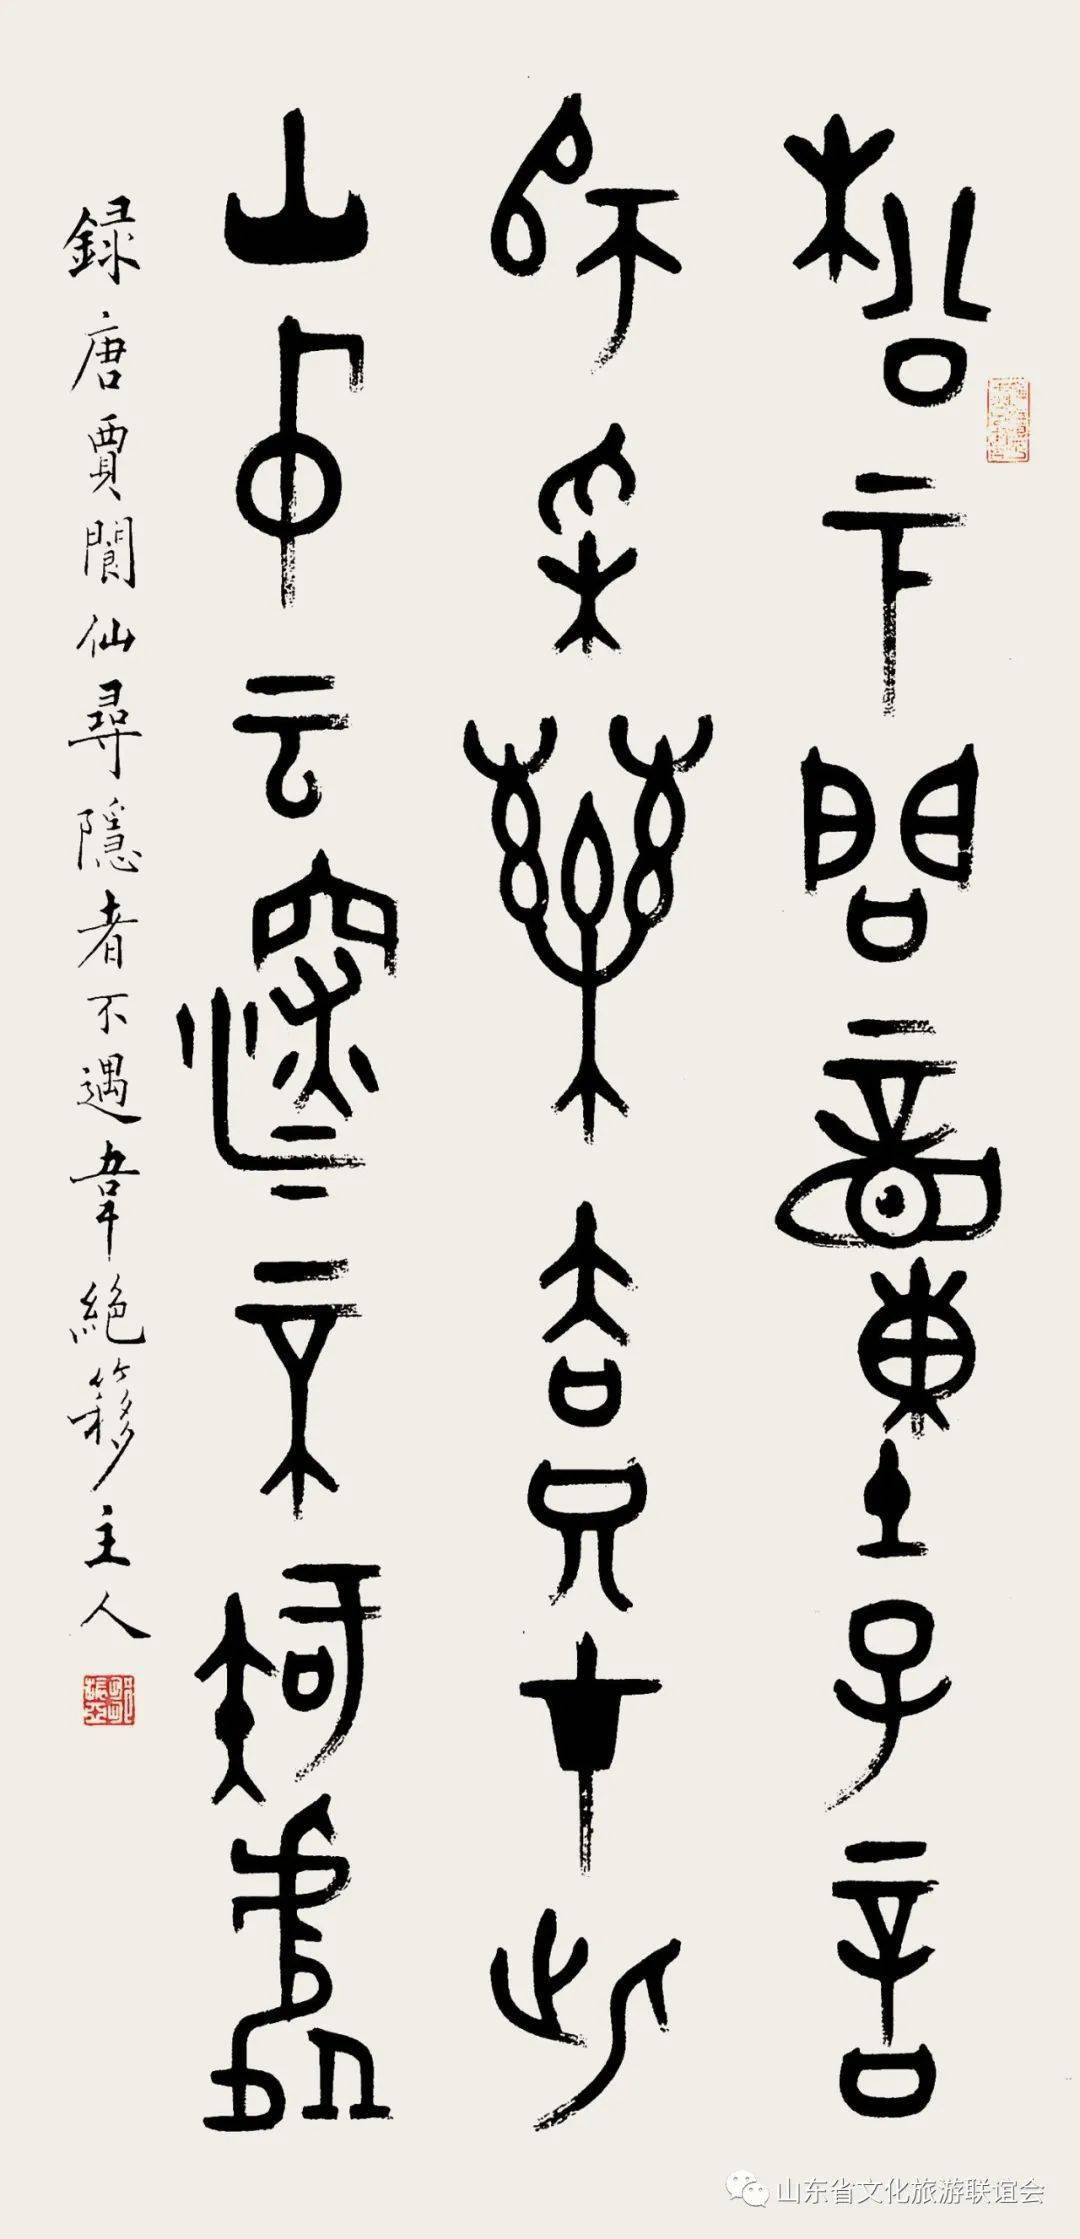 松下問童子言
師采藥去只在此
山中云深不知處
録唐賈閬仙尋隱者不遇韋絕簃主人
山东省文化旅游联谊会